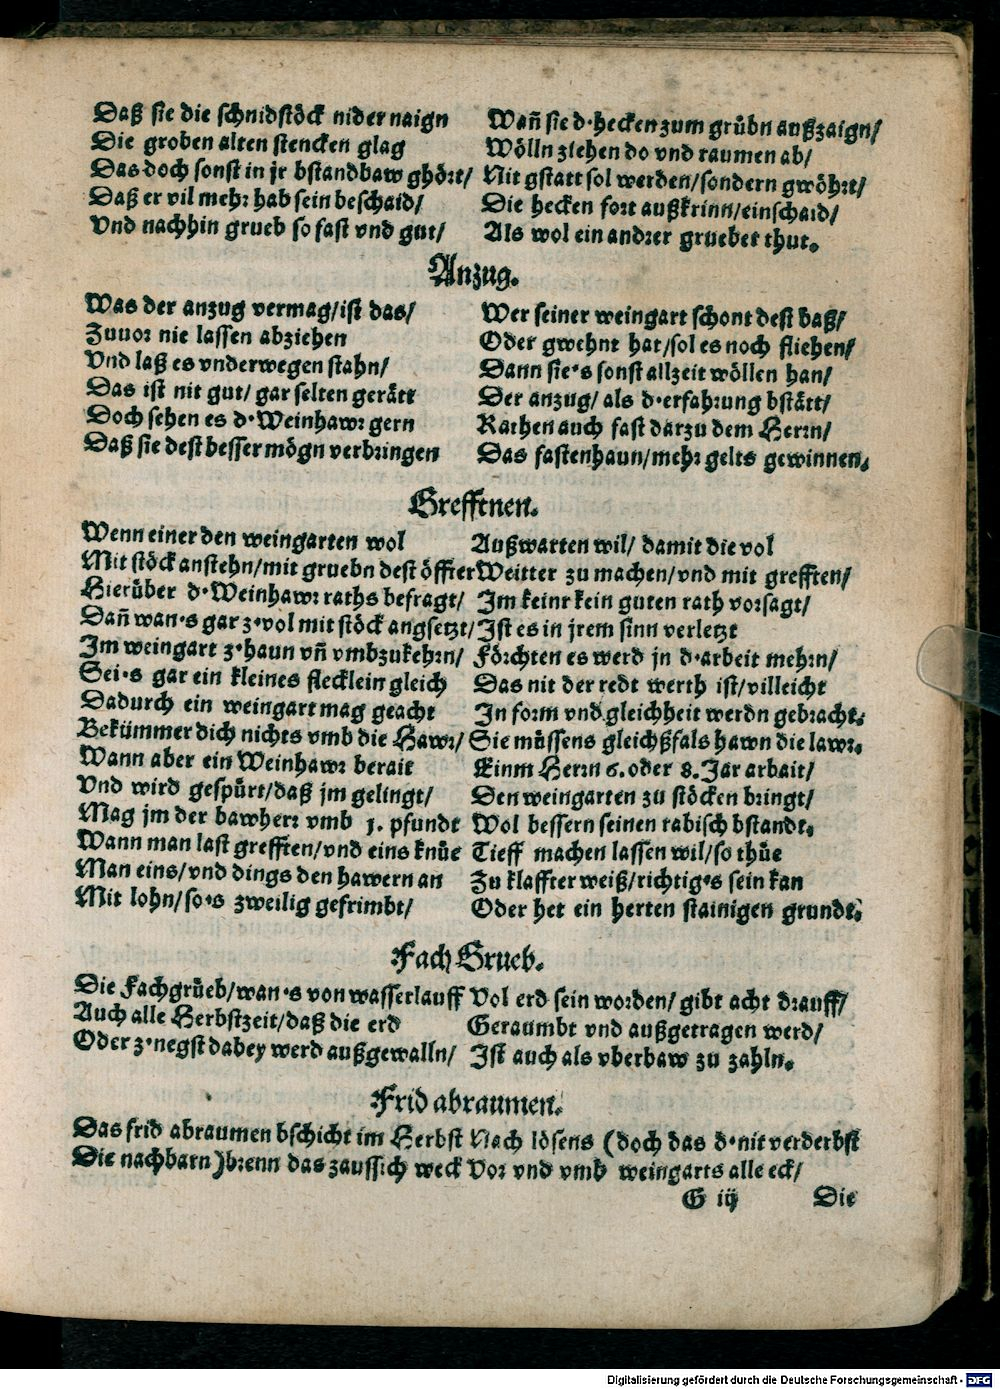 Daß sie die schnidstöck nider naign Wañ sie d·hecken zum grübn außzaign/
Die groben alten stencken glag Wölln ziehen do vnd raumen ab/
Das doch sonst in jr bstandbaw ghört/ Nit gstatt sol werden/sondern gwöhrt/
Daß er vil mehr hab sein beschaid/ Die hecken fort außkrinn/einschaid/
Vnd nachhin grueb so fast vnd gut/ Als wol ein andrer grueber thut.
Anzug.
Was der anzug vermag/ist das/ Wer seiner weingart schont dest baß/
Zuuor nie lassen abziehen Oder gwehnt hat/sol es noch fliehen/
Vnd laß es vnderwegen stahn/ Dann sie·s sonst allzeit wöllen han/
Das ist nit gut/ gar selten gerätt Der anzug/ als d·erfahrung bstätt/
Doch sehen es d·Weinhawr gern Rathen auch fast darzu dem Herrn/
Daß sie dest besser mögn verbringen Das fastenhaun/mehr gelts gewinnen.
Grefftnen.
Wenn einer den weingarten wol Außwarten wil/ damit die vol
Mit stöck anstehn/mit gruebn dest öffter Weitter zu machen/vnd mit grefften/
Hierüber d·Weinhawr raths befragt/ Im keinr kein guten rath vorsagt/
Dañ wan·s gar z·vol mit stöck angsetzt/ Ist es in jrem sinn verletzt
Im weingart z·haun vñ vmbzukehrn/ Förchten es werd jn d·arbeit mehrn/
Sei·s gar ein kleines flecklein gleich Das nit der redt werth ist/villeicht
Dadurch ein weingart mag geacht In form vnd gleichheit werdn gebracht.
Bekümmer dich nichts vmb die Hawr/ Sie müssens gleichßfals hawn die lawr.
Wann aber ein Weinhawr berait Einm Herrn 6. oder 8. Jar arbait/
Vnd wird gespürt/daß jm gelingt/ Den weingarten zu stöcken bringt/
Mag jm der bawherr vmb 1. pfundt Wol bessern seinen rabisch bstandt.
Wann man last grefften/vnd eins knüe Tieff machen lassen wil/so thüe
Man eins/vnd dings den hawern an Zu klaffter weiß/richtig·s sein kan
Mit lohn/so·s zweilig gefrimbt/ Oder het ein herten stainigen grundt.
Fach Grueb.
Die Fachgrüeb/wan·s von wasserlauff Vol erd sein worden/ gibt acht drauff/
Auch alle Herbstzeit/daß die erd Geraumbt vnd außgetragen werd/
Oder z·negst dabey werd außgewalln/ Ist auch als vberbaw zu zahln.
Frid abraumen.
Das frid abraumen bschicht im Herbst Nach lösens (doch das d·nit verderbst
Die nachbarn) brenn das zaussich weck Vor vnd vmb weingarts alle eck/
G iij Die
Digitalisierung gefördert durch die Deutsche Forschungsgemeinschaft - DFG